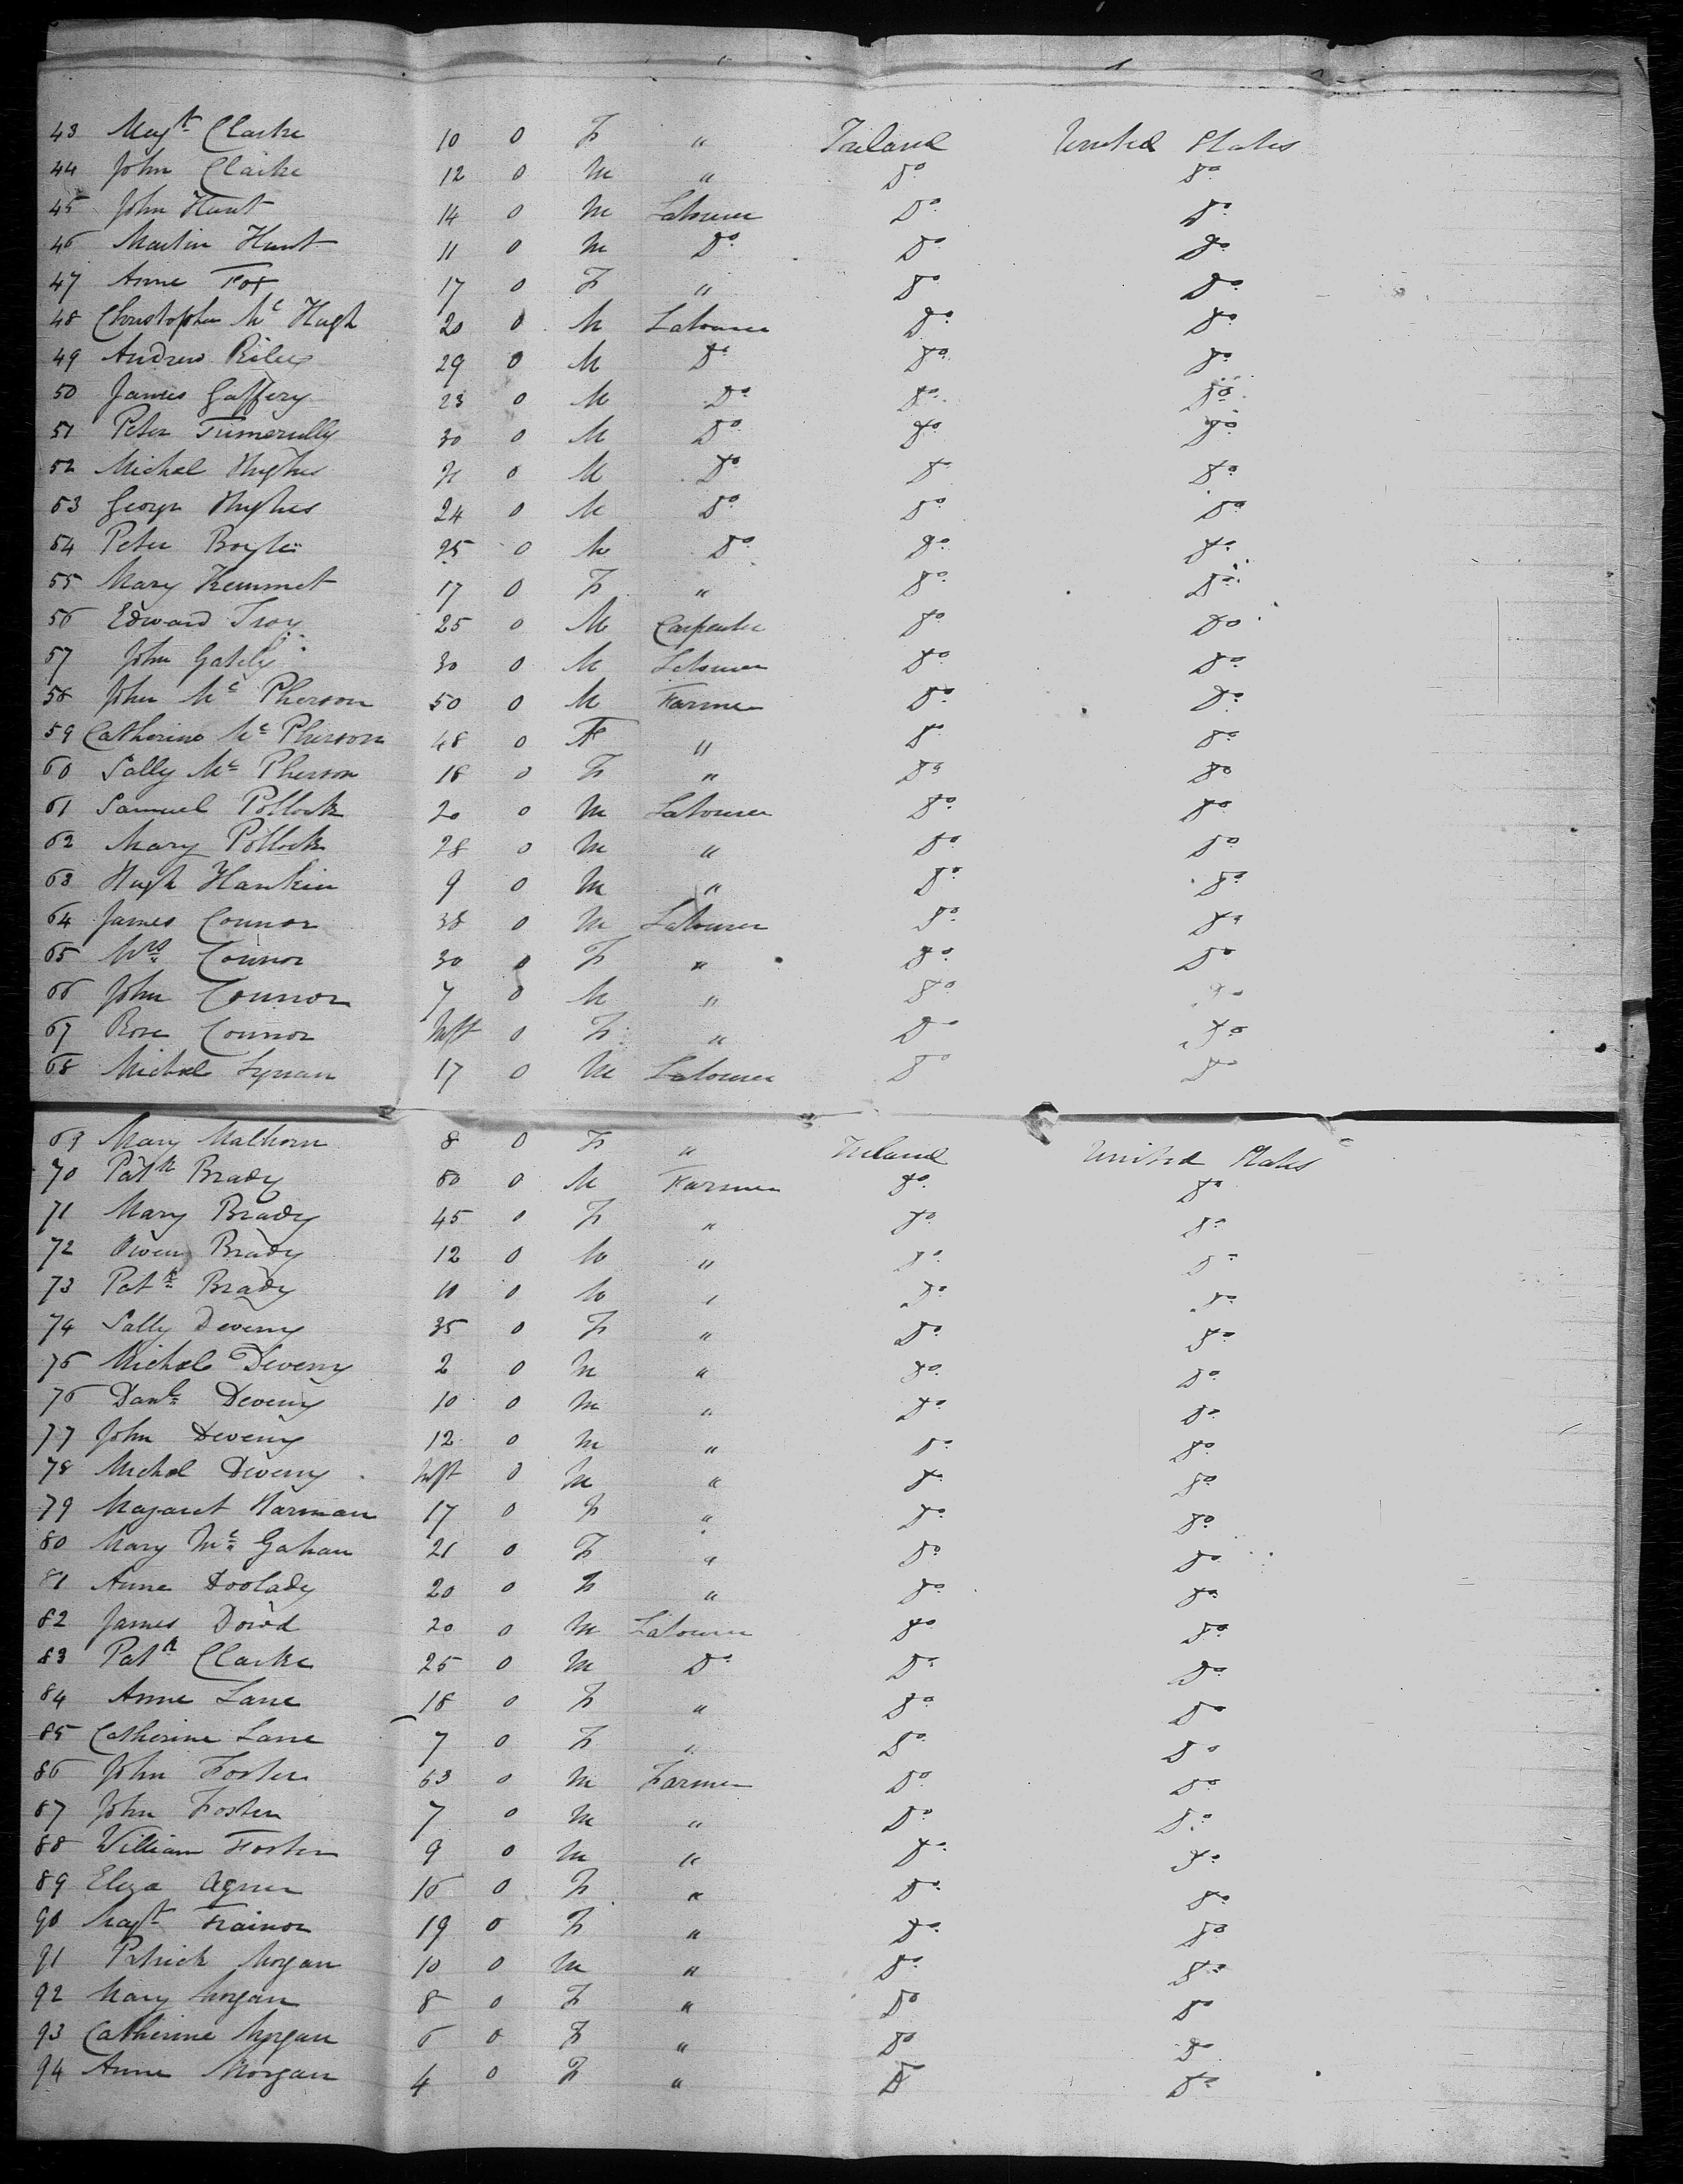 43 Mag^t Clarke 10 0 F " Ireland United States
44 John Clarke 12 0 M " Do Do
45 John Hunt 14 0 M Labourer Do Do
46 Martin Hunt 11 0 M Do Do Do
47 Anne Fox 17 0 F " Do Do
48 Christopher Mc Hugh 20 0 M Labourer Do Do
49 Andrew Riley 29 0 M Do Do Do
50 James Gaffery 23 0 M Do Do Do
51 Peter 30 0 M Do Do Do
52 Michal Hughes 0 M Do Do Do
53 George Hughes 24 0 M Do Do Do
54 Peter Boyle 25 0 M Do Do Do
55 Mary Kemmet 17 0 F " Do Do
56 Edward Troy 25 0 M Carpenter Do Do
57 John Gately 30 0 M Labourer Do Do
58 John Mc Pherson 50 0 M Farmer Do Do
59 Catherine Mc Pherson 48 0 F " Do Do
60 Sally Mc Pherson 18 0 F " Do Do
61 Samuel Pollock 20 0 M Labourer Do Do
62 Mary Pollock 28 0 M " Do Do
63 Hugh Hankin 9 0 M " Do Do
64 James Connor 38 0 M Labourer Do Do
65 Mrs Connor 30 0 F " Do Do
66 John Connor 7 0 M " Do Do
67 Rose Connor Inft 0 F " Do Do
68 Michal Lynan 17 0 M Labourer Do Do
69 Mary Malhorn 8 0 F " Ireland United States
70 Patk Brady 50 0 M Farmer Do Do
71 Mary Brady 45 0 F " Do Do
72 Owen Brady 12 0 M " Do Do
73 Patk Brady 10 0 M " Do Do
74 Sally Deveny 35 0 F " Do Do
75 Michal Deveny 2 0 M " Do Do
76 Danl Deveny 10 0 M " Do Do
77 John Deveny 12 0 M " Do Do
78 Michal Deveny Inft 0 M " Do Do
79 Magaret Harman 17 0 F " Do Do
80 Mary Mc Gahan 21 0 F " Do Do
81 Anne Doolady 20 0 F " Do Do
82 James Dowd 20 0 M Labourer Do Do
83 Patk Clarke 25 0 M Do Do Do
84 Anne Lane 18 0 F " Do Do
85 Catherine Lane 7 0 F " Do Do
86 John Foster 63 0 M Farmer Do Do
87 John Foster 7 0 M " Do Do
88 William Foster 9 0 M " Do Do
89 Eliza Agnew 16 0 F " Do Do
90 Magt Trainor 19 0 F " Do Do
91 Patrick Morgan 10 0 M " Do Do
92 Mary Morgan 8 0 F " Do Do
93 Catherine Morgan 6 0 F " Do Do
94 Anne Morgan 4 0 F " Do Do